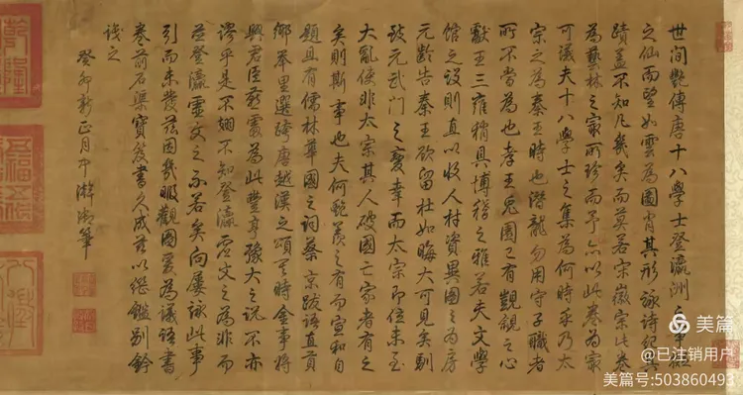 世間艷傳唐十八學士登瀛洲之事擬
之仙而望如雲為圖肖其形詠詩紀其
蹟蓋不知凡幾矣而莫若宋徽宗此卷
為藝林之家所珍而予亦以此卷為家
可議夫十八學士之集為何時乎乃太
宗之為秦王時也潛龍勿用守子職者
所不當為也孝王兔園已有覬覦之心
獻王三雍稍具博稽之雅若夫文學
館之設則直以收人材資異圖之為房
元齡告秦王欲留杜如晦大可見矣馴
致元武門之變幸而太宗即位未至
大亂使非太宗其人破國亡家者有之
矣則斯事也夫何艷羨之有而宣和自
題且有儒林華國之詞蔡京跋語直貢
鄉舉里選跨唐越漢之頌其時金事將
興君臣宴為此豐亨豫大之說不亦
謬乎是不翅不知登瀛虛文之為非而
並登瀛虛文之不若矣向屢詠此事
引而未發茲因幾暇觀圖爰為議語書
卷前石渠寶笈書久成茲以堪鑑別鈐
識之
癸卯新正月中澣御筆
美篇
@已注销用户
美篇号:503860493